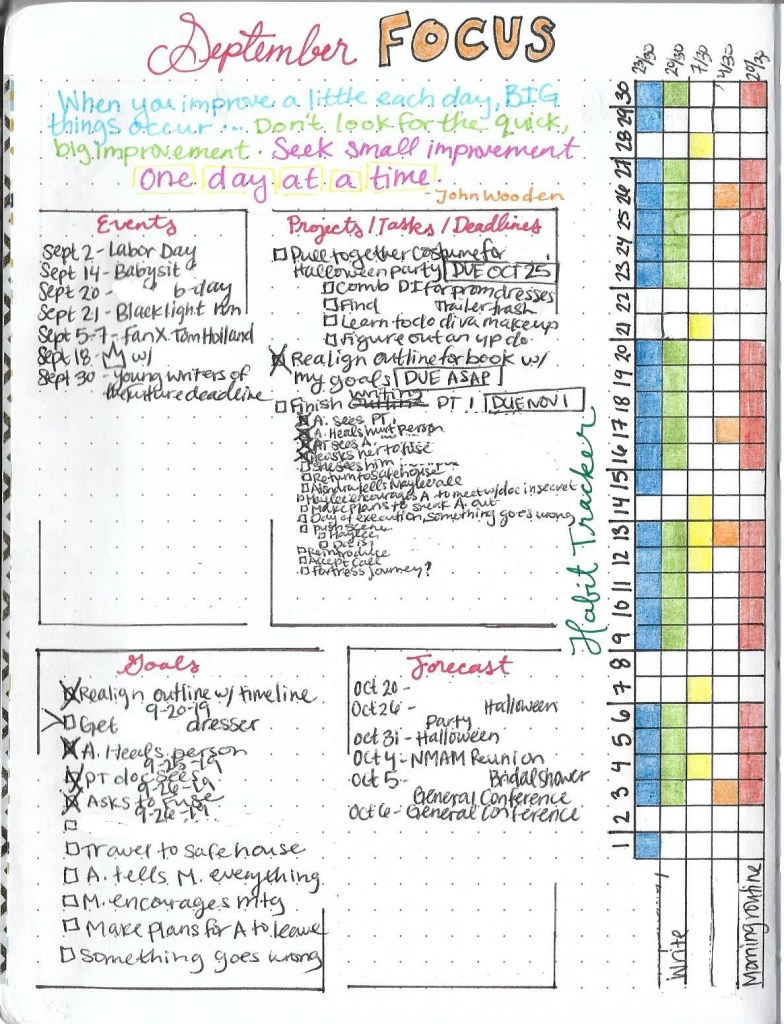 September FOCUS
When you improve a little each day, BIG
things occur... Don't look for the quick,
big improvement. Seek small improvement
one day at a time.
- John Wooden
Events
Sept 2 - Labor Day
Sept 14 - Babysit
Sept 20 - b-day
Sept 21 - Blacklight run
Sept 5-7 - FanX Tom Holland
Sept 18 - w/
Sept 30 - Young writers of
the future deadline
Projects / Tasks / Deadlines
Pull together costume for
Halloween party DUE OCT 25
Comb DI for prom dresses
Find Trailer trash
Learn to do diva makeup
Figure out an up do
Realign outline for book w/
my goals DUE ASAP
writing
Finish outline PT 1 DUE NOV 1
A. sees PT
A. Heals hurt person
PT sees A.
He asks her to fuse
She sees him
Return to safehouse
A tells all
encourages A to meet w/ doc in secret
Make plans to sneak A. out
Day of execution, something goes wrong
Push scene
Reintroduce
Accept call
Fortress journey?
Goals
Realign outline w/ timeline
9-20-19
Get dresser
A. Heals person
9-25-19
PT doc sees
9-26-19
Asks to Fuse
9-26-19
Travel to safehouse
A. tells M. everything
M. encourages mtg
Make plans for A to leave
Something goes wrong
Forecast
Oct 20 -
Oct 26 - Halloween
Party
Oct 31 - Halloween
Oct 4 - NMAM Reunion
Oct 5 - Bridal shower
General Conference
Oct 6 - General Conference
Habit Tracker
23/30
20/30
7/30
4/30
20/30
1 2 3 4 5 6 7 8 9 10 11 12 13 14 15 16 17 18 19 20 21 22 23 24 25 26 27 28 29 30
Write
Morning routine